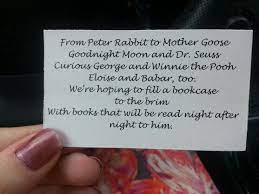 From Peter Rabbit to Mother Goose
Goodnight Moon and Dr. Seuss
Curious George and Winnie the Pooh
Eloise and Babar, too.
We're hoping to fill a bookcase
to the brim
With books that will be read night after
night to him.